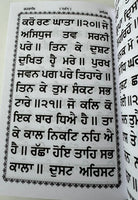 ਕਰੋ ਰਣ ਘਾਤਾ ॥੨੦॥ ਜੋ
ਅਸਿਧੁਜ ਤਵ ਸਰਨੀ
ਪਰੇ ॥ ਤਿਨ ਕੇ ਦੁਸਟ
ਦੁਖਿਤ ਹ੍ਵੈ ਮਰੇ ॥ ਪੁਰਖ
ਜਵਨ ਪਗ ਪਰੇ ਤਿਹਾਰੇ ॥
ਤਿਨ ਕੇ ਤੁਮ ਸੰਕਟ ਸਭ
ਟਾਰੇ ॥੨੧॥ ਜੋ ਕਲਿ ਕੋ
ਇਕ ਬਾਰ ਧਿਐ ਹੈ ॥ ਤਾ
ਕੇ ਕਾਲ ਨਿਕਟਿ ਨਹਿ ਐ
ਹੈ ॥ ਰੱਛਾ ਹੋਇ ਤਾਹਿ ਸਭ
ਕਾਲਾ ॥ ਦੁਸਟ ਅਰਿਸਟ